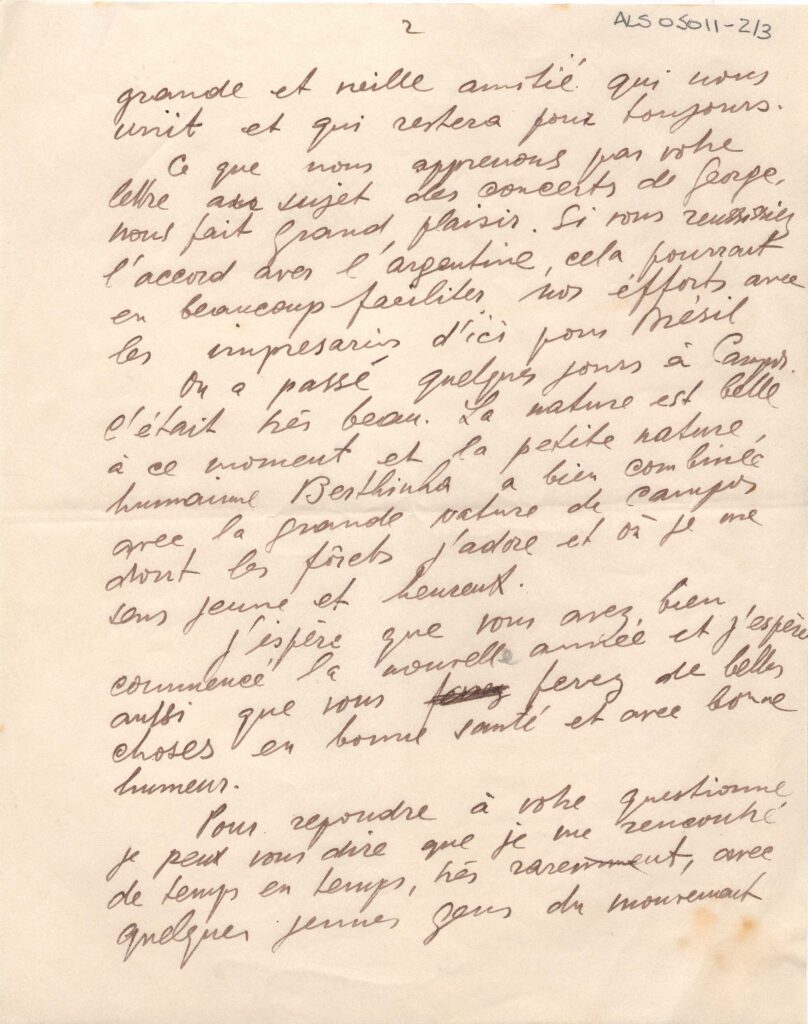 2
ALS 05011-2/3
grande et vieille amitié qui nous
unit et qui restera pour toujours.
Ce que nous apprenons par votre
lettre au sujet des concerts de George,
nous fait grand plaisir. Si vous reussissiez
l'accord avec l'argentine, cela pourrait
en beaucoup faciliter nos éfforts avec
les impresarios d'ici pour Brésil
On a passé quelques jours à Campos.
C'était très beau. La nature est belle
à ce moment et la petite nature
humainne Berthinha a bien combinée
avec la grande nature de Campos
dont les fôrets j'adore et où je me
sens jeune et heureux.
J'espère que vous avez bien
commencé la nouvelle année et j'espère
aussi que vous ferez de belles
choses en bonne santé et avec bonne
humeur.
Pour repondre à votre questionne
je peux vous dire que je me rencontré
de temps en temps, très rarement, avec
quelques jeunes gens du mouvement